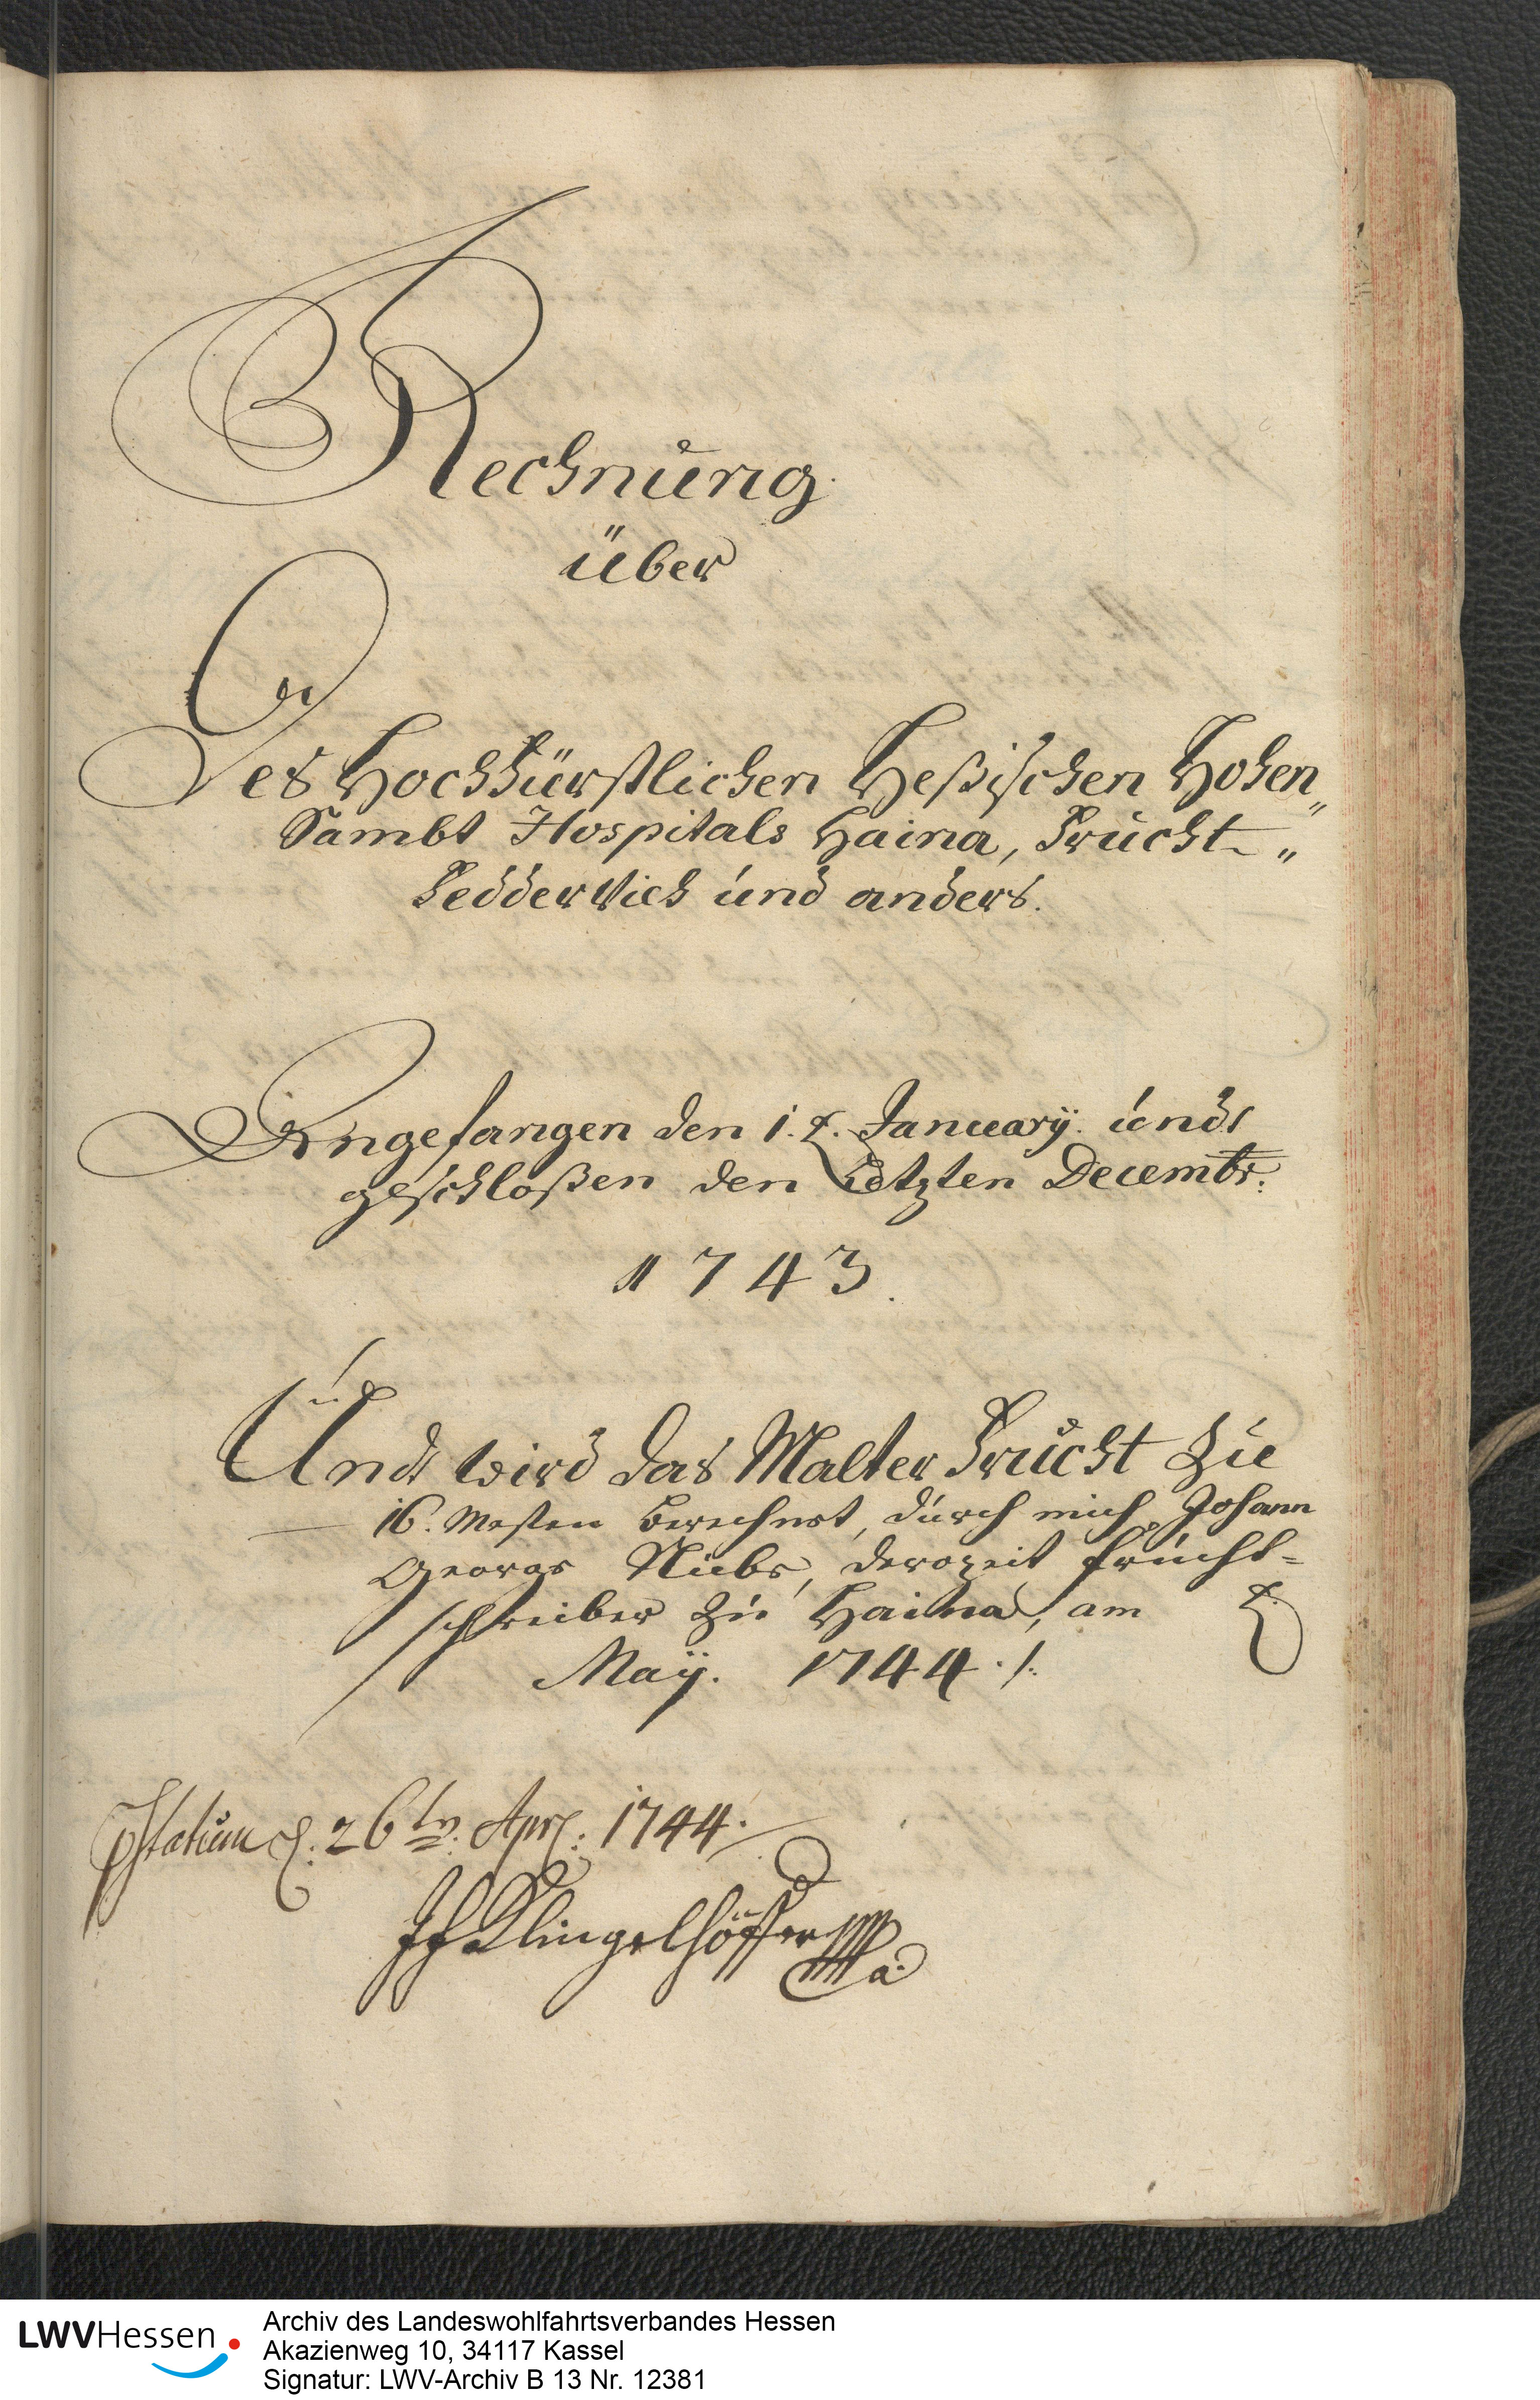 Rechnung
über
Des Hochfürstlichen Heßischen Hohen„
Sambt Hospitals Haina, Frucht-„
Feddervieh und anders.
Angefangen den 1. t. January. undt
geschloßen den Letzten Decembr:
1743.
Undt wird das Malter Frucht zu
16. Mesten berechnet, durch mich Johann
George derozeit frucht=
schreiber zu Haina, am t.
May. 1744 ./.
pstatum d. 26 tn. Apr: 1744.
Klingelhöffer
LWVHessen
Archiv des Landeswohlfahrtsverbandes Hessen
Akazienweg 10, 34117 Kassel
Signatur: LWV-Archiv B 13 Nr. 12381